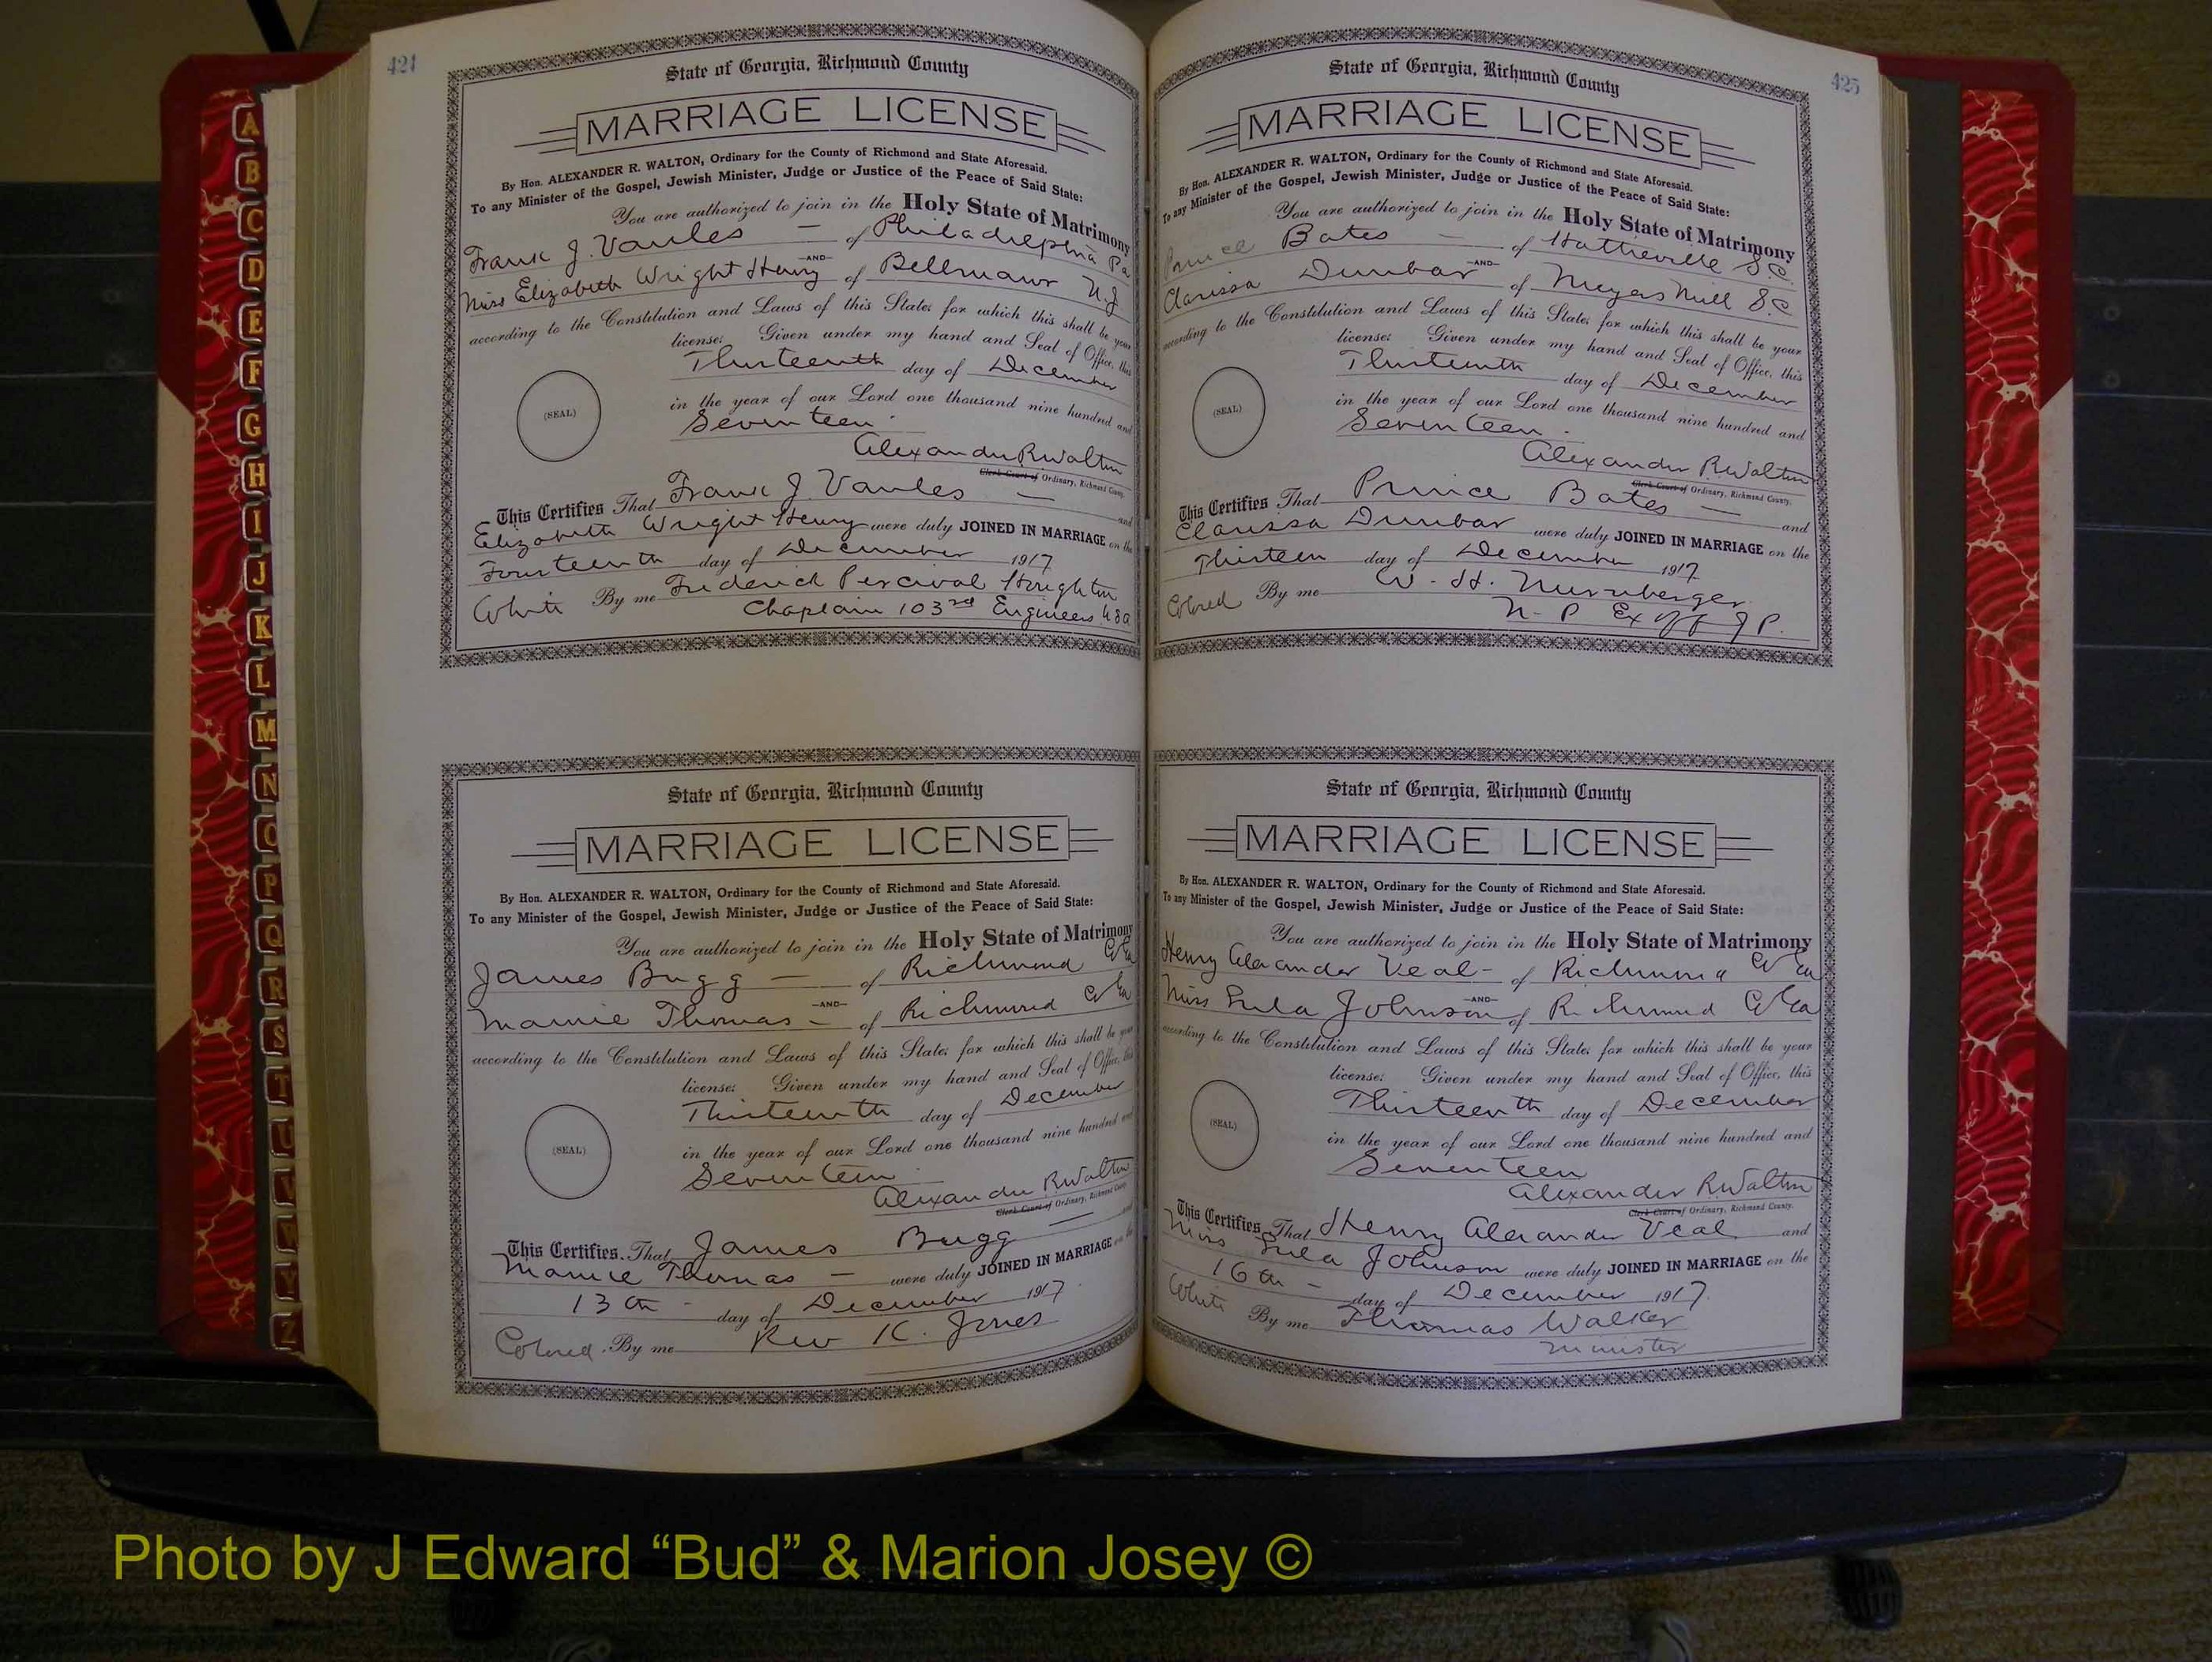 424
State of Georgia, Richmond County
MARRIAGE LICENSE
By Hon. ALEXANDER R. WALTON, Ordinary for the County of Richmond and State Aforesaid.
To any Minister of the Gospel, Jewish Minister, Judge or Justice of the Peace of Said State:
You are authorized to join in the Holy State of Matrimony
Frank J. Vaules — of Philadelphia Pa
—AND—
Miss Elizabeth Wright Henry of Bellmawr N.J
according to the Constitution and Laws of this State; for which this shall be your
license: Given under my hand and Seal of Office, this
Thirteenth day of December
(SEAL)
in the year of our Lord one thousand nine hundred and
Seventeen
Alexander R Walton
Clerk Court of Ordinary, Richmond County.
This Certifies That Frank J. Vaules — and
Elizabeth Wright Henry were duly JOINED IN MARRIAGE on the
Fourteenth day of December 1917
White By me Frederick Percival Houghton
Chaplain 103rd Engineers USA
State of Georgia, Richmond County
MARRIAGE LICENSE
By Hon. ALEXANDER R. WALTON, Ordinary for the County of Richmond and State Aforesaid.
To any Minister of the Gospel, Jewish Minister, Judge or Justice of the Peace of Said State:
You are authorized to join in the Holy State of Matrimony
James Bugg — of Richmond Co Ga
—AND—
Mamie Thomas — of Richmond Co Ga
according to the Constitution and Laws of this State; for which this shall be your
license: Given under my hand and Seal of Office, this
Thirteenth day of December
(SEAL)
in the year of our Lord one thousand nine hundred and
Seventeen
Alexander R Walton
Clerk Court of Ordinary, Richmond County.
This Certifies That James Bugg — and
Mamie Thomas — were duly JOINED IN MARRIAGE on the
13th - day of December 1917
Colored By me Rev K. Jones
425
State of Georgia, Richmond County
MARRIAGE LICENSE
By Hon. ALEXANDER R. WALTON, Ordinary for the County of Richmond and State Aforesaid.
To any Minister of the Gospel, Jewish Minister, Judge or Justice of the Peace of Said State:
You are authorized to join in the Holy State of Matrimony
Prince Bates — of Hattieville S.C.
—AND—
Clarissa Dunbar of Meyers Mill S.C
according to the Constitution and Laws of this State; for which this shall be your
license: Given under my hand and Seal of Office, this
Thirteenth day of December
(SEAL)
in the year of our Lord one thousand nine hundred and
Seventeen
Alexander R Walton
Clerk Court of Ordinary, Richmond County.
This Certifies That Prince Bates — and
Clarissa Dunbar were duly JOINED IN MARRIAGE on the
Thirteen day of December 1917
Colored By me W. H. Nurnberger
N- P Ex Off J P.
State of Georgia, Richmond County
MARRIAGE LICENSE
By Hon. ALEXANDER R. WALTON, Ordinary for the County of Richmond and State Aforesaid.
To any Minister of the Gospel, Jewish Minister, Judge or Justice of the Peace of Said State:
You are authorized to join in the Holy State of Matrimony
Henry Alexander Veal - of Richmond Co Ga
—AND—
Miss Lula Johnson of Richmond Co Ga
according to the Constitution and Laws of this State; for which this shall be your
license: Given under my hand and Seal of Office, this
Thirteenth day of December
(SEAL)
in the year of our Lord one thousand nine hundred and
Seventeen
Alexander R Walton
Clerk Court of Ordinary, Richmond County.
This Certifies That Henry Alexander Veal and
Miss Lula Johnson were duly JOINED IN MARRIAGE on the
16th - day of December 1917.
White By me Thomas Walker
Minister
A
B
C
D
E
F
G
H
I
J
K
L
M
N
O
P
Q
R
S
T
U
V
W
Y
Z
Photo by J Edward “Bud” & Marion Josey ©